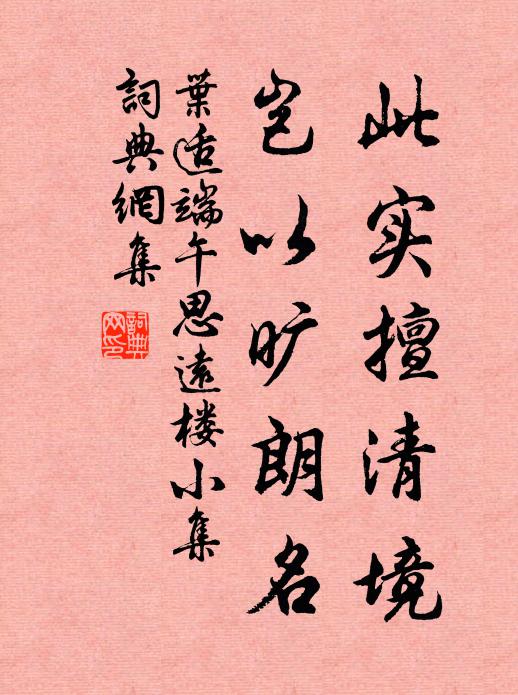 此实擅清境
岂以旷朗名
葉适端午思遠楼小集
詞典網集
詞典網印